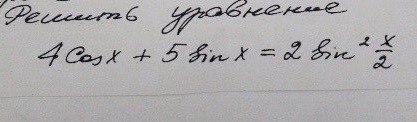 Решить уравнение
4 Cos x + 5 Sin x = 2 Sin² x/2